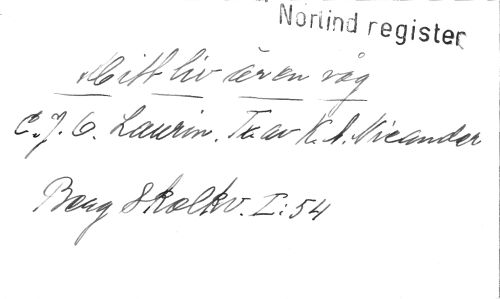 Norlind register
Mitt liv är en våg
C. J. O. Laurin. Tx av K. A. Nicander
Berg Skolkv. I:54